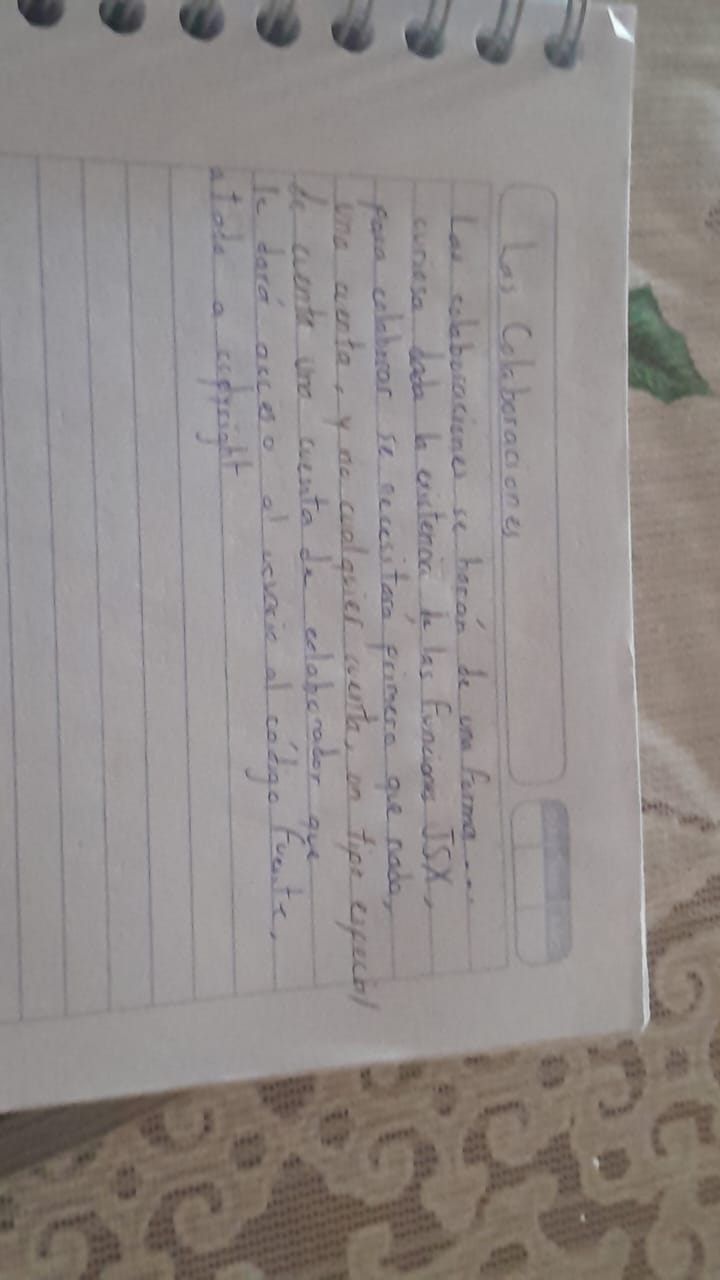 Las Colaboraciones
Las colaboraciones se harán de una forma....
curiosa dada la existencia de las funciones JSX,
para colaborar se necesitará primero que nada,
una cuenta, y no cualquier cuenta, un tipo especial
de cuenta una cuenta de colaborador que
le dará acceso al usuario al código fuente,
atado a copyright